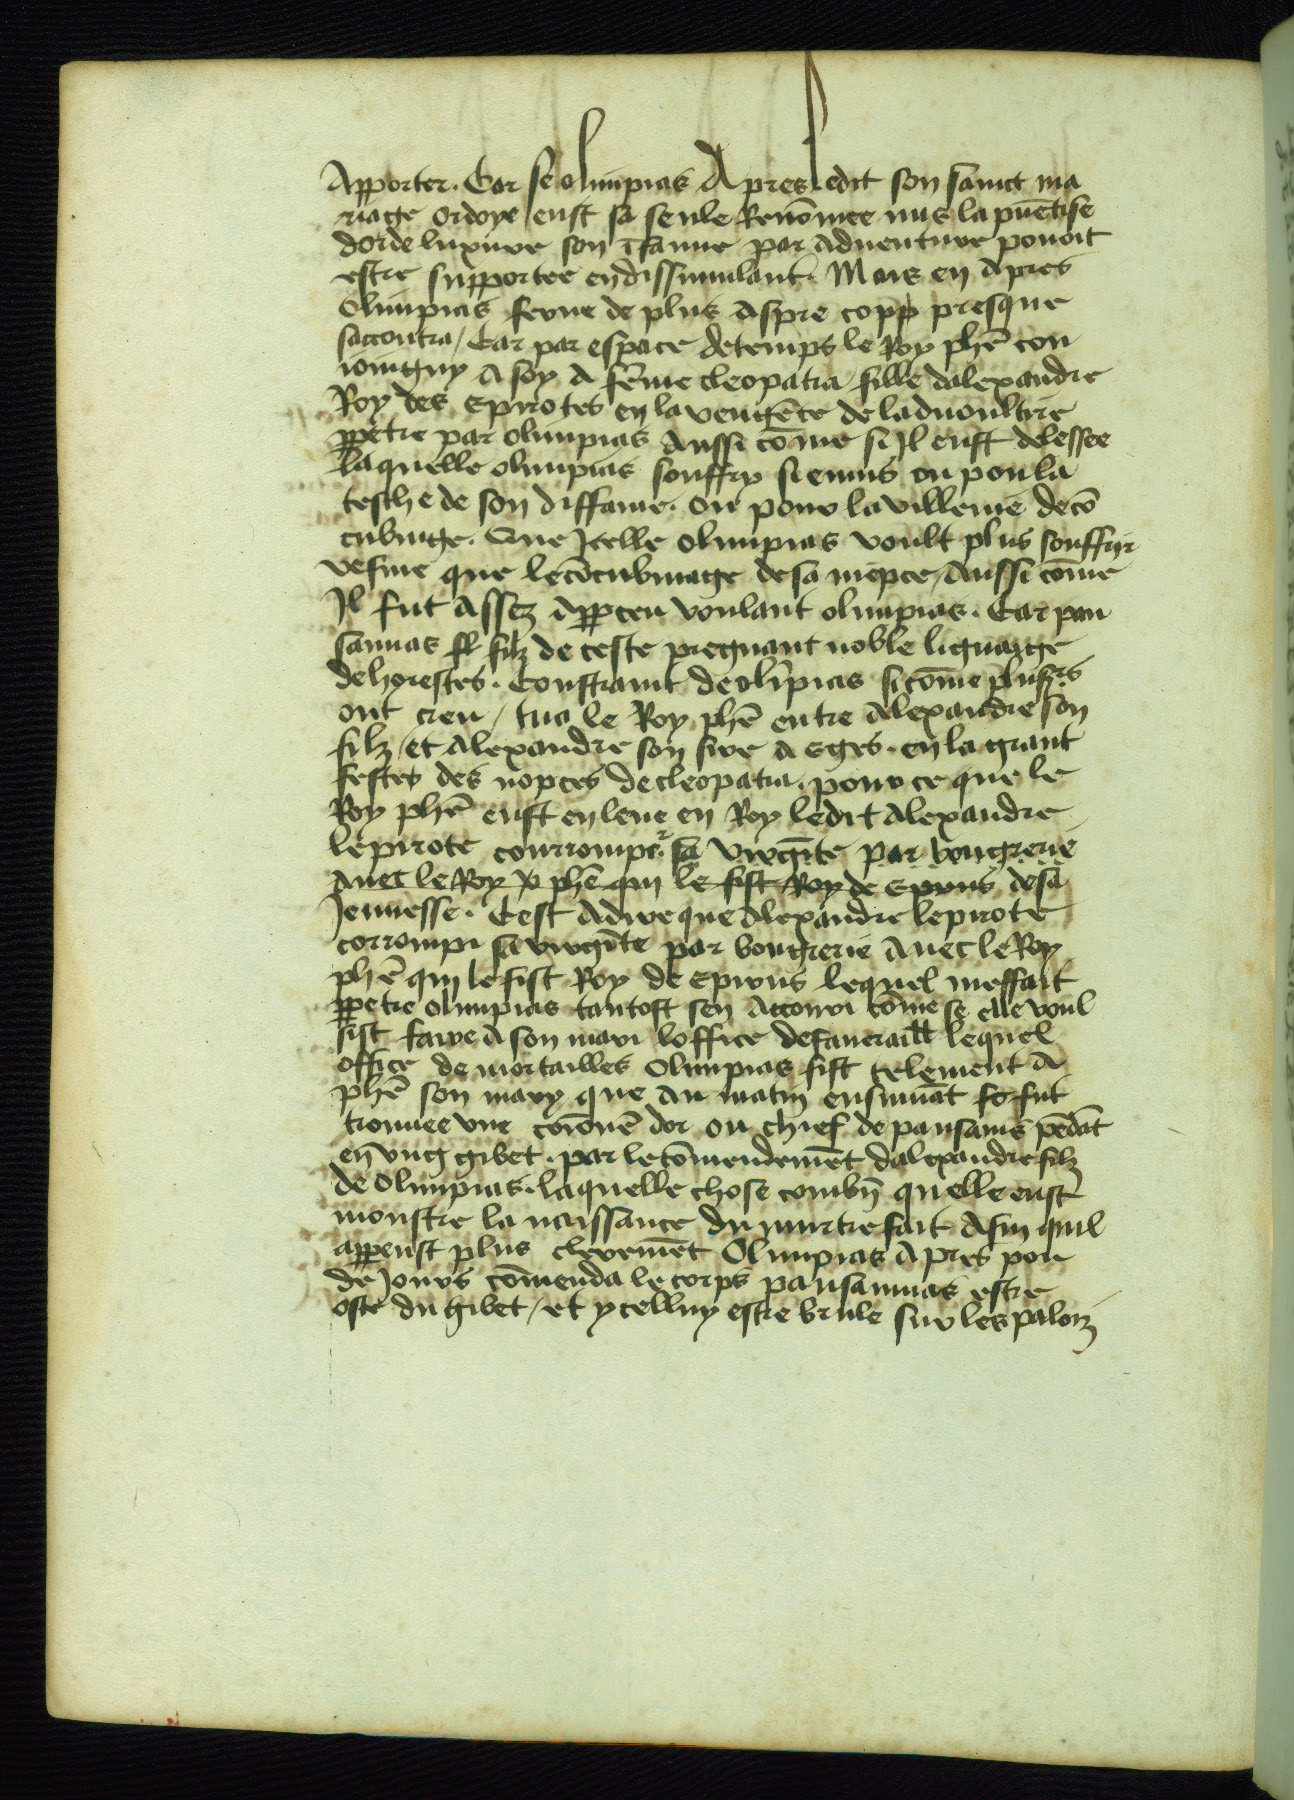 Apporter. Car se olimpias Apres ledit son sainct ma
riage ordoye eust sa seule Renōmee mis la puētise
dorde luxure son ifamie par adventure povoit
estre supportee en dissimulant. Mais en apres
Olimpias ferue de plus aspre copp presque
saccontra / Car par espace de temps le Roy phē con
ioingny a soy a fēme cleopatra fille dalexandre
Roy des Epirotes en la vengēce de laduoultrie
ppetre par olimpias aussi cōme si Il eust delessee
laquelle olimpias souffry si enuis ou pou la
tesche de son diffame. ou pour la villenie de cō
cubinage. Que Icelle olimpias voult plus souffrir
vefme que le cōcubinage de sa niepce / Aussi cōme
Il fut assez apperceu voulant olimpias. Car pau
sanias fl filz de ceste pregnant noble lignaige
de horestes. Constraint de olīpias si cōme plusrs
ont creu / tua le Roy phē entre Alexandre son
filz / et Alexandre son sire a Eges. en la grant
festes des nopces de cleopatra. pour ce que le
Roy phē eust enleue en Roy ledit Alexandre
lepirote courrompe r sa virgīte par bougrerie
avec le Roy p phē qui le fist Roy de Epirus de sa
Jennesse. Cest adire que Alexandre lepirote
corrompi sa virgīte par bougrerie avec le Roy
phē qui le fist Roy de Epirus lequel meffait
ppetre olimpias tantost sen accouri cōme se elle voul
sist faire a son mari loffice de faneraill lequel
office de mortailles Olimpias fist telement a
phē son mary que au matin ensiuāt fo fut
trouuee vne corōnē dor ou chief de pausanis pēdāt
en vng gibet. par le cōmendemēt dalexandre filz
de Olimpias. laquelle chose combn̄ quelle eust
monstre la naissance du murtre fait Afin quil
appeust plus cleremēt Olimpias Apres pou
de Jours cōmenda le corps pausanias estre
oste du gibet / et ycelluy estre brule sur les palorz